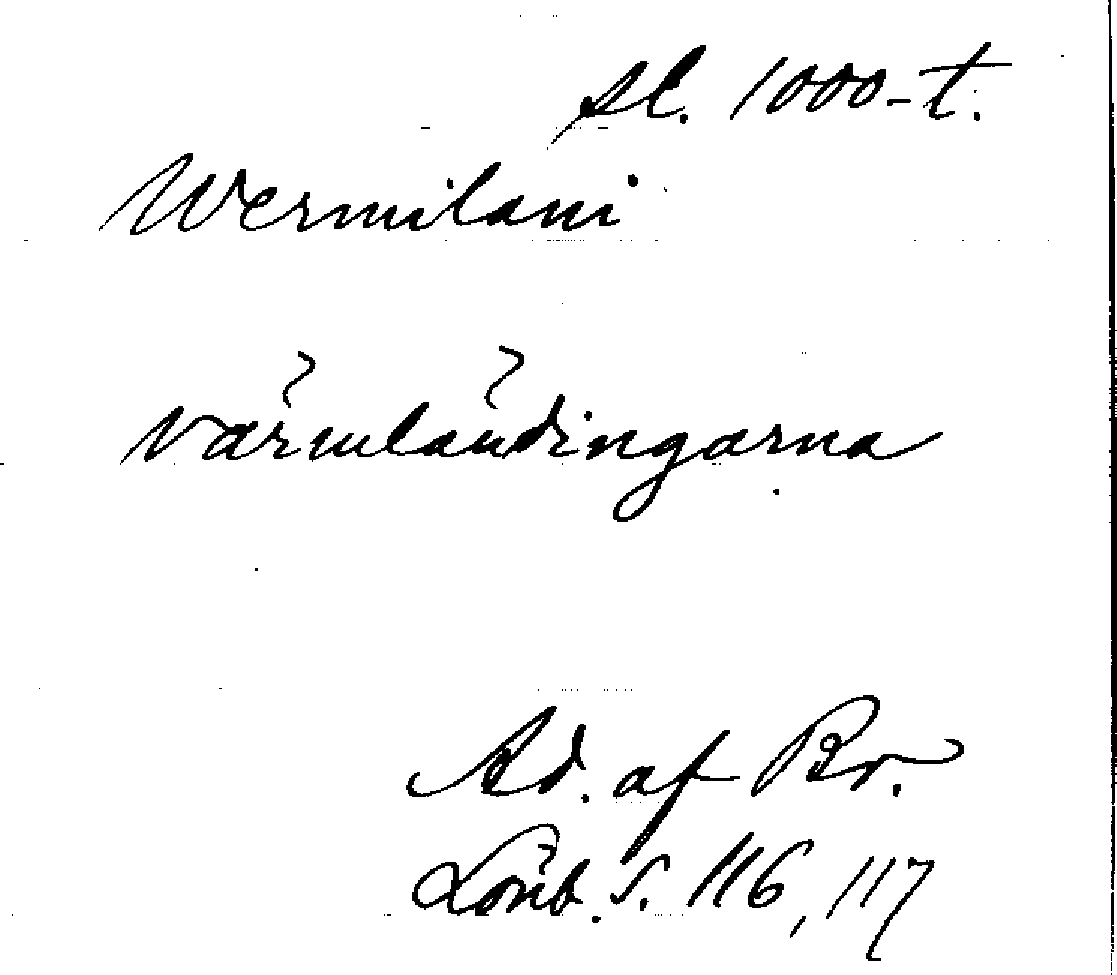 sl. 1000-t.
Wermilani
Värmländingarna
Ad. af Br.
Lönb. s. 116, 117